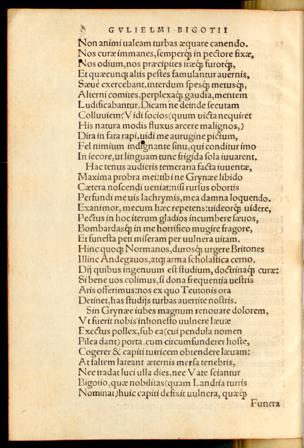 GVLIELMI BIGOTII
Non animi ualeam turbas æquare canendo.
Nos curæ immanes, semperq́; in pectore fixæ,
Nos odium, nos præcipites iræq́; furorq́;,
Et quæcunq; altis pestes famulantur auernis,
Sæuè exercebant, interdum spesq́; metusq́;,
Alterni comites, perplexaq́; gaudia, mentem
Ludificabantur. Dicam ne deinde secutam
Colluuiem: Vidi socios (quum uicta nequiret
His natura modis fluxus arcere malignos,)
Dira in fata rapi, uidi me aurugine pictum,
Fel nimium indignante sinu, qui conditur imo
In iecore, ut linguam tunc frigida sola iuuarent.
Hac tenus audieris temeraria facta iuuentæ,
Maxima probra metibi ne Grynæe libido
Cætera noscendi ueniat: nisi rursus obortis
Perfundi me uis lachrymis, mea damna loquendo.
Exanimor, mecum hæc repetens: uideorq́; uidere,
Pectus in hoc iterum gladios incumbere sæuos,
Bombardasq́; in me horrifico mugire fragore,
Et funesta peti miseram per uulnera uitam.
Hinc quoq; Normanos, durosq́; urgere Britones
Illinc Andegauos, atq; arma scholastica cerno.
Dij quibus ingenuum est studium, doctrinaq́; curæ:
Si bene uos colimus, si dona frequentia uestris
Aris offerimus: nos ex quo Teutonis ora
Detinet, has studijs turbas auertite nostris.
Sin Grynæe iubes magnum renouare dolorem,
Vt fuerit nobis inhonesto uulnere læuæ
Exectus pollex, sub ea (cui pendula nomen
Pila dant) porta. cum circumfunderer hoste,
Cogerer & capiti tutricem obtendere læuam:
At saltem lateant æternis mersa tenebris,
Nec tradat luci ulla dies, nec Vate sciantur
Bigotio, quæ nobilitas (quam Landria turris
Nominat) huic capiti defixit uulnera, quæq́;
Funera